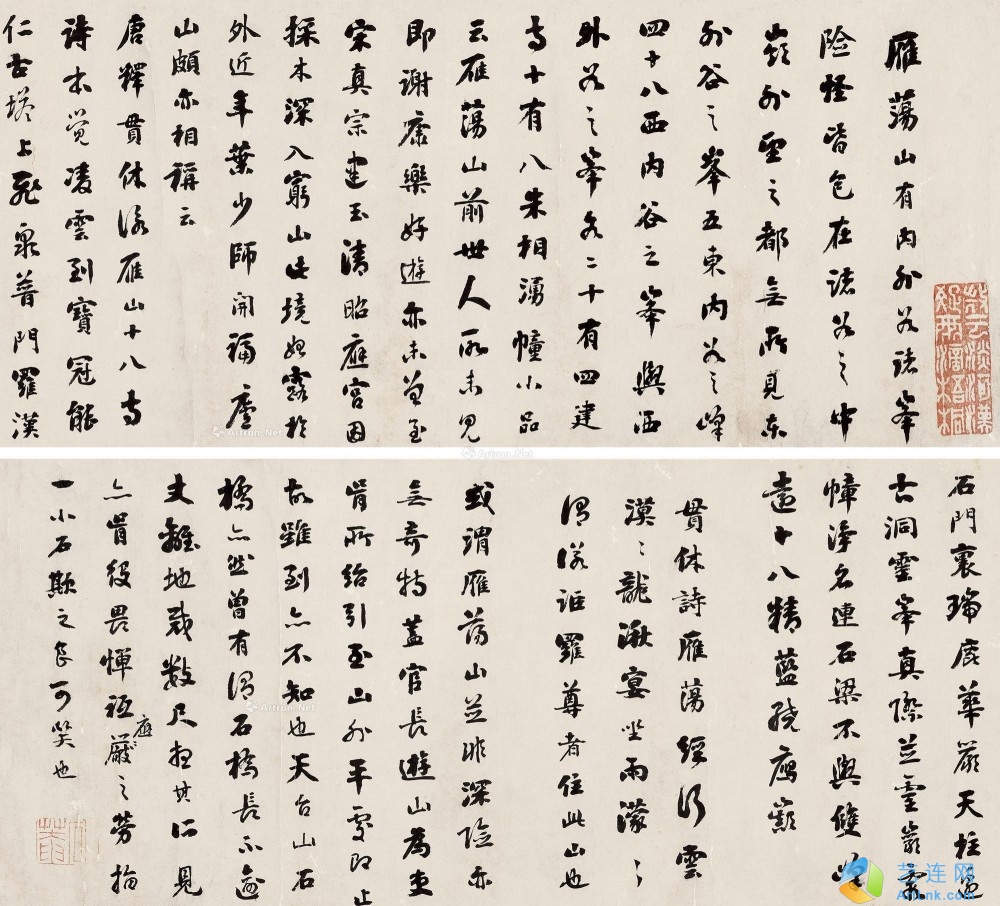 雁蕩山有內外谷諸峯
險怪皆包在諸谷之中
嶺外望之都無所見東
外谷之峯五東內谷之峰
四十八西內谷之峯與西
外谷之峯各二十有四建
寺十有八朱相湧幢小品
云雁蕩山前世人所未見
即謝康樂好遊亦未曾至
宋真宗建玉清昭應宮因
採木深入窮山此境始露於
外近年葉少師開福廬
山頗亦相稱云
唐釋貫休詠雁山十八寺
詩本覺凌雲到寶冠能
仁古塔上飛泉普門羅漢
石門裏瑞鹿華嚴天柱邊
古洞靈峯真際並靈巖
幛淨名連石梁不與雙峰
遠十八精藍繞雁巔
貫休詩雁蕩經行雲
漠漠龍湫宴坐雨濛濛
謂諾詎羅尊者住此山也
或謂雁蕩山並非深險亦
無奇特蓋官長遊山為吏
胥所紿引至山外平處即止
故雖到亦不知也天台山石
橋亦然曾有謂石橋長不逾
丈離地幾數尺想其所見
亦胥役畏憚祗應嚴之勞指
一小石欺之良可笑也
艺连网
Artlnk.cn
Artron.Net